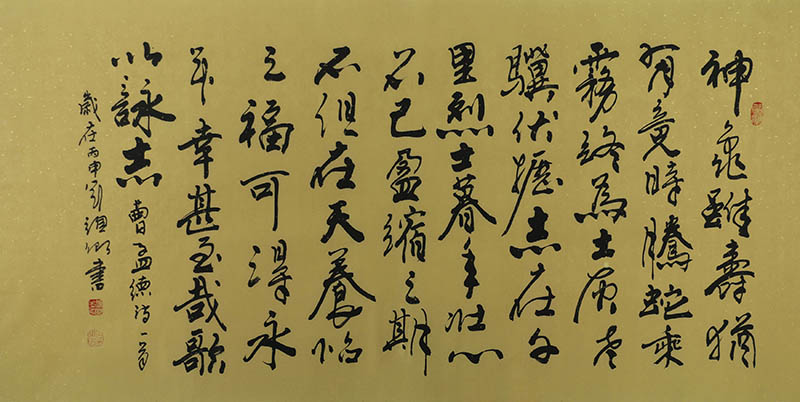 神龜雖壽猶
有竟時騰蛇乘
霧終為土灰老
驥伏櫪志在千
里烈士暮年壯心
不已盈縮之期
不但在天養怡
之福可得永
年幸甚至哉歌
以詠志 曹孟德詩一首
歲在丙申劉書